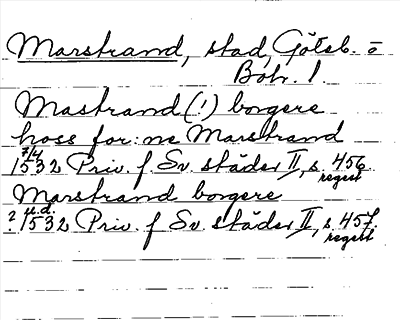 Marstrand, stad, Göteb. o
Boh. l.
Mastrand (!) borgere
hoss for: ne Marstrand
7/4
1532 Priv. f. Sv. städer II, s. 456
regest
Marstrand borgere
u.d.
? 1532 Priv. f Sv. städer II, s. 457.
regest